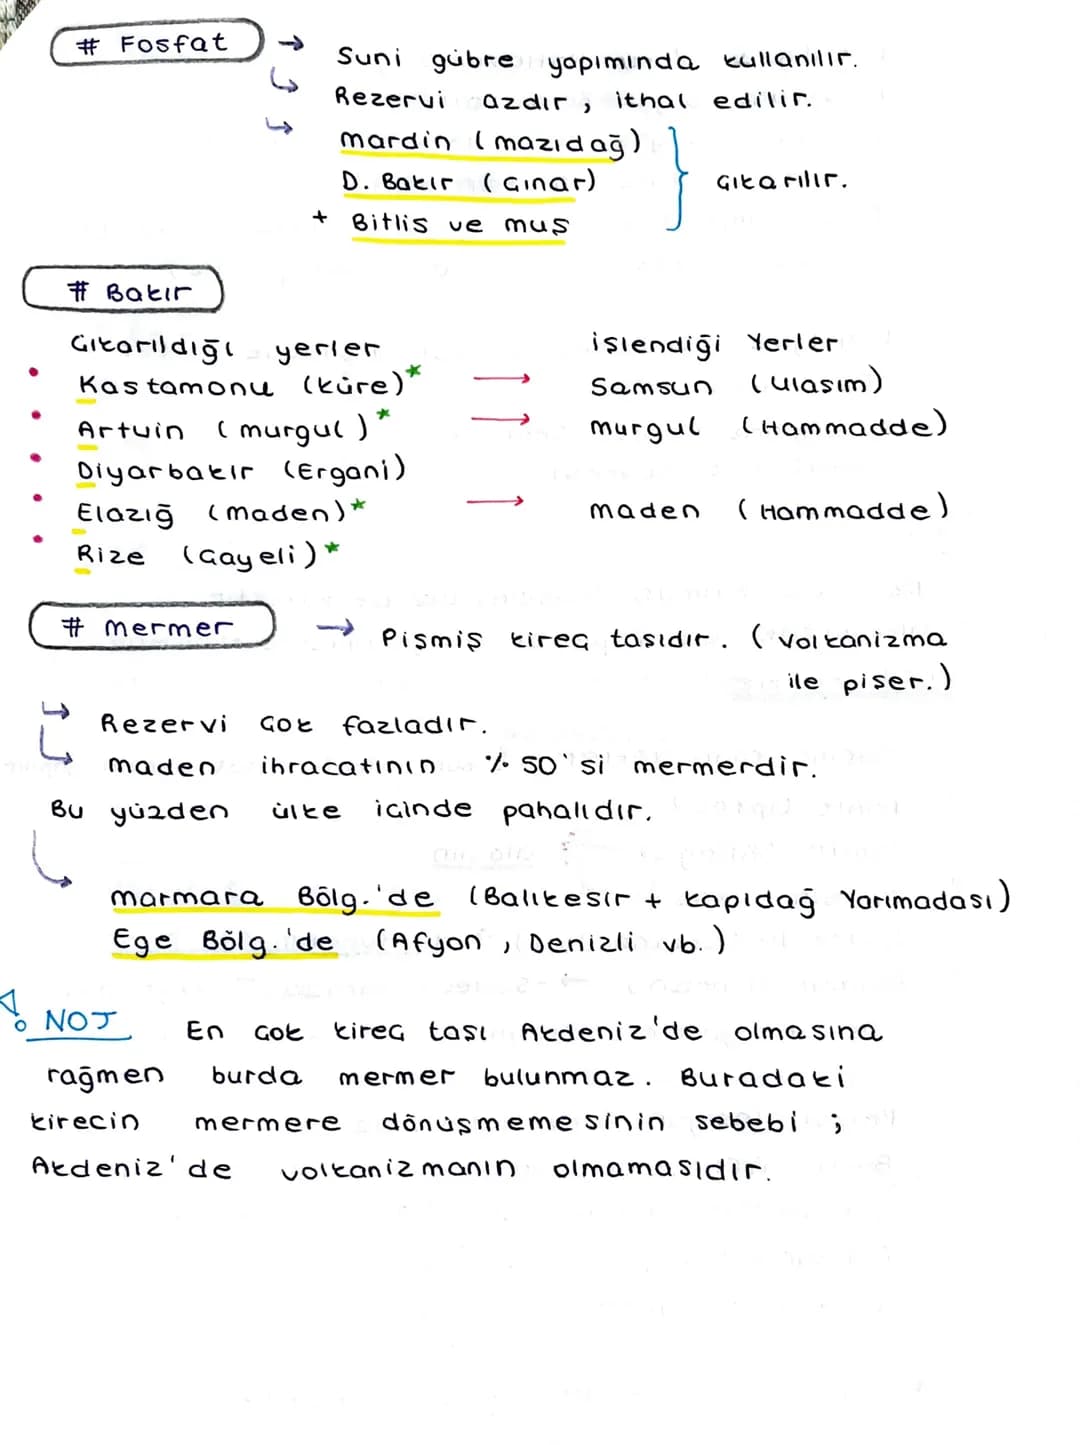 # Fosfat → Suni gübre yapımında kullanılır.
Rezervi azdır, ithal edilir.
mardin (mazıdağ)
D. Bakır (Çınar) Çıkarılır.
+ Bitlis ve muş
# Bakır
Çıkarıldığı yerler işlendiği Yerler
• Kastamonu (küre)* → Samsun (ulaşım)
• Artvin (murgul)* → murgul (Hammadde)
• Diyarbakır (Ergani)
• Elazığ (maden)* → maden (Hammadde)
• Rize (Çayeli)*
# mermer → Pişmiş kireç taşıdır. (volkanizma
ile pişer.)
Rezervi çok fazladır.
maden ihracatının % 50'si mermerdir.
Bu yüzden ülke içinde pahalıdır.
marmara Bölg.'de (Balıkesir + kapıdağ Yarımadası)
Ege Bölg.'de (Afyon, Denizli vb.)
NOT En çok kireç taşı Akdeniz'de olmasına
rağmen burda mermer bulunmaz. Buradaki
kirecin mermere dönüşmemesinin sebebi ;
Akdeniz'de volkanizmanın olmamasıdır.